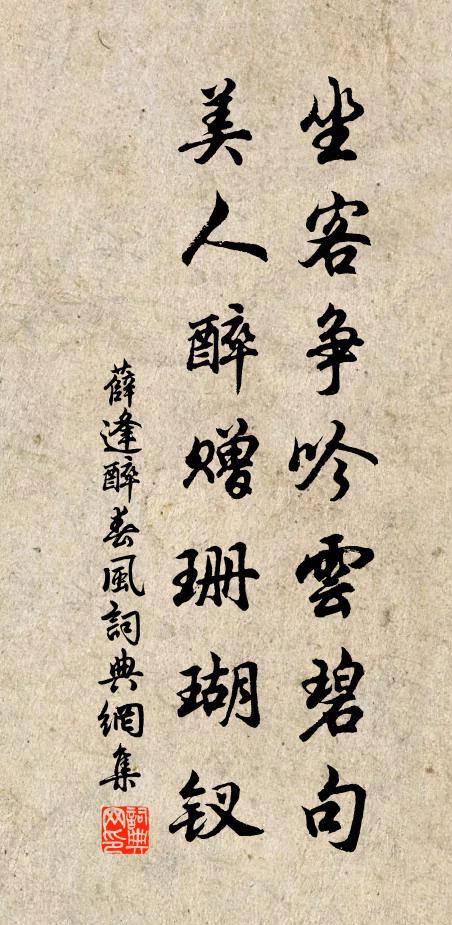 坐客争吟雲碧句
美人醉赠珊瑚钗
薛逢醉春風詞典網集
詞典網印